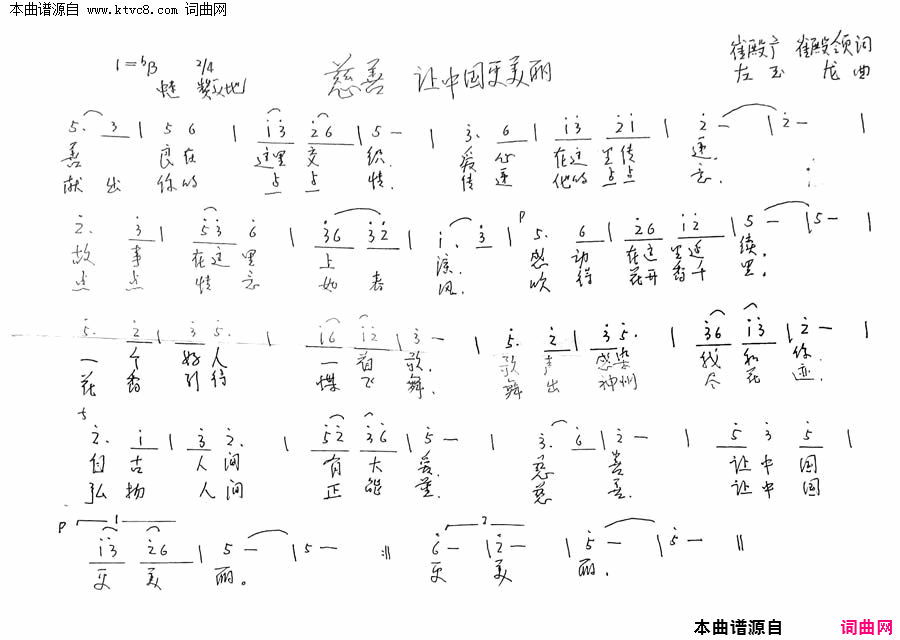 本曲谱源自 www.ktvc8.com 词曲网
1=♭B 2/4
慈善 让中国更美丽
崔殿广 崔殿领词
左玉龙曲
5· 3 | 5 6 | i3 26 | 5 — | 3· 6 | i3 2i | 2 — | 2 — |
善 良在 这里 交 织 爱 心 在这 里传 递
献 出 你的 点 点 情 传 递 他的 点点 意
2· 3 | 53 6 | 36 32 | i· 3 | 5· 6 | 26 i2 | 5 — | 5 — |
故 事 在这 里 上 演 感 动 在这 里延 续
点 点 情 意 如 春 风 吹 得 花开 香千 里
5· 2 | 3 5· | i6 i2 | 3 — | 5· 2 | 3 5· | 36 i3 | 2 — |
一 个 好 人 一 首 歌 歌 声 感 染 我 和 你
花 香 引 得 蝶 飞 舞 舞 出 神州 尽 花 迹
2· i | 3 2· | 52 36 | 5 — | 3· 6 | 2 — | 5 3 5 |
自 古 人 间 有 大 爱 慈 善 让 中 国
弘 扬 人 间 正 能 量 慈 善 让 中 国
1 2
i3 26 | 5 — | 5 — :|| 6 — | 2 — | 5 — | 5 — ||
更 美 丽 更 美 丽
本曲谱源自 词曲网